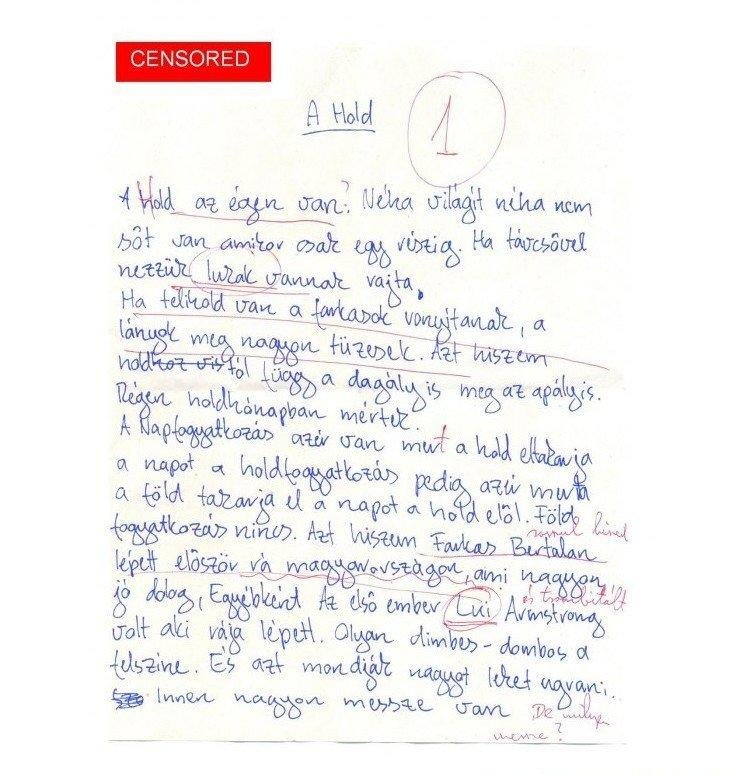 CENSORED
A Hold
1
A Hold az égen van? Néha világit néha nem
sőt van amikor csak egy részig. Ha távcsővel
nezzük lukak vannak rajta.
Ha telihold van a farkasok vonyitanak, a
lányok meg nagyon tüzesek. Azt hiszem
holdtól függ a dagály is meg az apályis.
Régen holdhónapban mértek.
A Napfogyatkozás azér van mert a hold eltakarja
a napot a holdfogyatkozás pedig azér mert a
a föld takarja el a napot a hold elől. Föld
fogyatkozás nincs. Azt hiszem Farkas Bertalan
lépett először rá magyarországon, ami nagyon
jó dolog, Egyébként Az első ember Lui Armstrong
és trombitált
volt aki rája lépett. Olyan dimbes-dombos a
felszine. És azt mondják nagyot lehet ugrani.
Innen nagyon messze van
De milyen
messze?